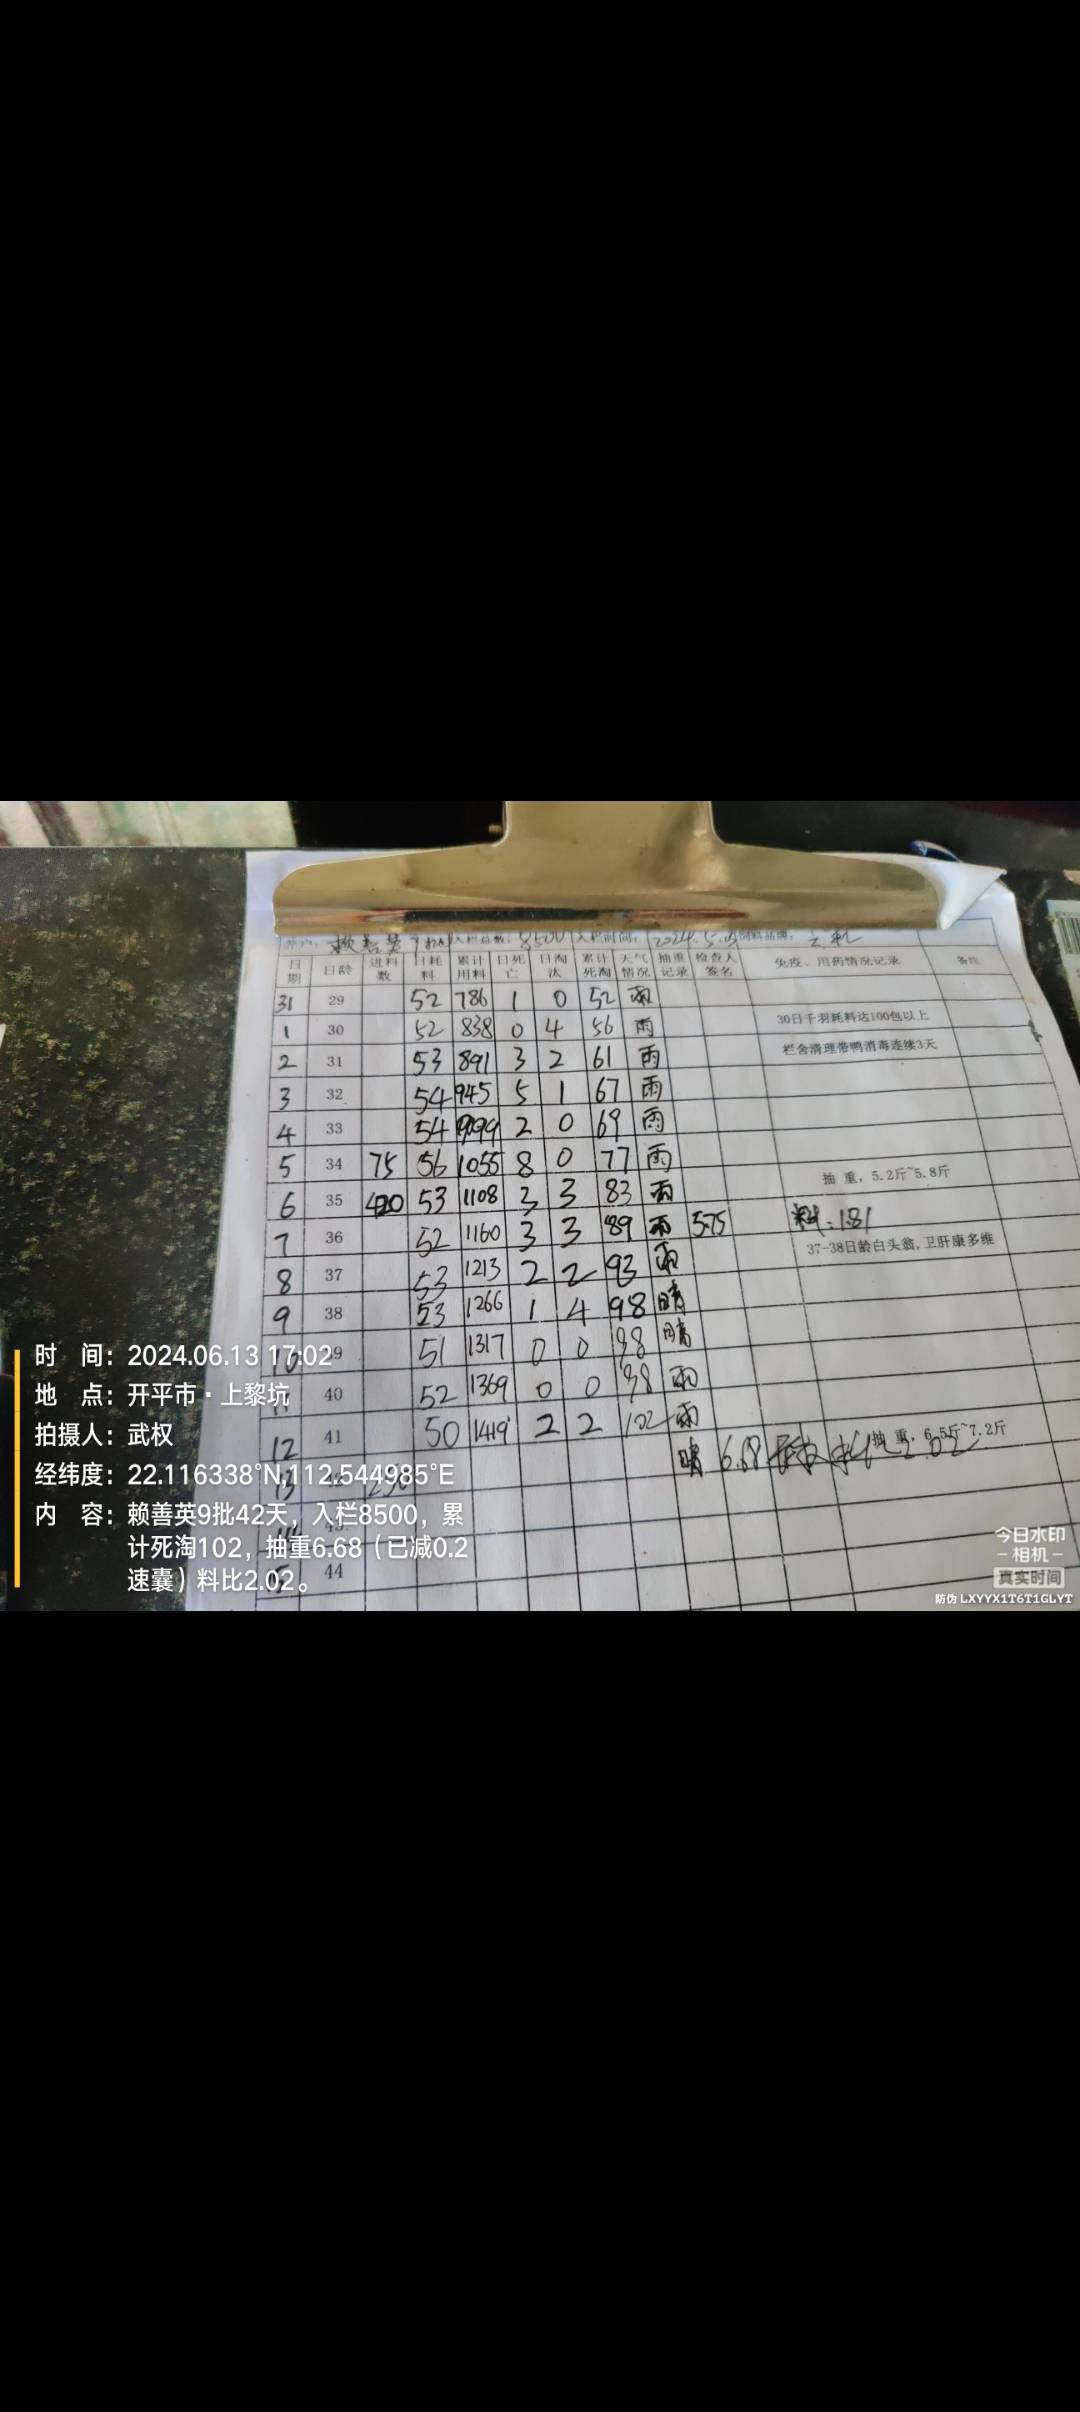 养户: 赖善英 9批 入栏总数: 8500 入栏时间: 2024.5. 饲料品牌:
日期 日龄 进料数 日耗料 累计用料 日死亡 日淘汰 累计死淘 天气情况 抽重记录 检查人签名 免疫、用药情况记录 备注
31 29 52 786 1 0 52 雨
1 30 52 838 0 4 56 雨 30日千羽耗料达100包以上
2 31 53 891 3 2 61 雨 栏舍清理带鸭消毒连续3天
3 32 54 945 5 1 67 雨
4 33 54 999 2 0 69 雨
5 34 75 56 1055 8 0 77 雨 抽 重，5.2斤~5.8斤
6 35 420 53 1108 3 3 83 雨
7 36 52 1160 3 3 89 雨 5.75 料:181
37-38日龄白头翁,卫肝康多维
8 37 53 1213 2 2 93 雨
9 38 53 1266 1 4 98 晴
10 39 51 1317 0 0 98 晴
11 40 52 1369 0 0 98 雨
12 41 50 1419 2 2 102 雨
13 晴 6.68 2.02 抽 重，6.5斤~7.2斤
44
时 间：2024.06.13 17:02
地 点：开平市·上黎坑
拍摄人：武权
经纬度：22.116338°N,112.544985°E
内 容：赖善英9批42天，入栏8500，累
计死淘102，抽重6.68（已减0.2
速囊）料比2.02。
今日水印
-相机-
真实时间
防伪 LXYYX1T6T1GLYT